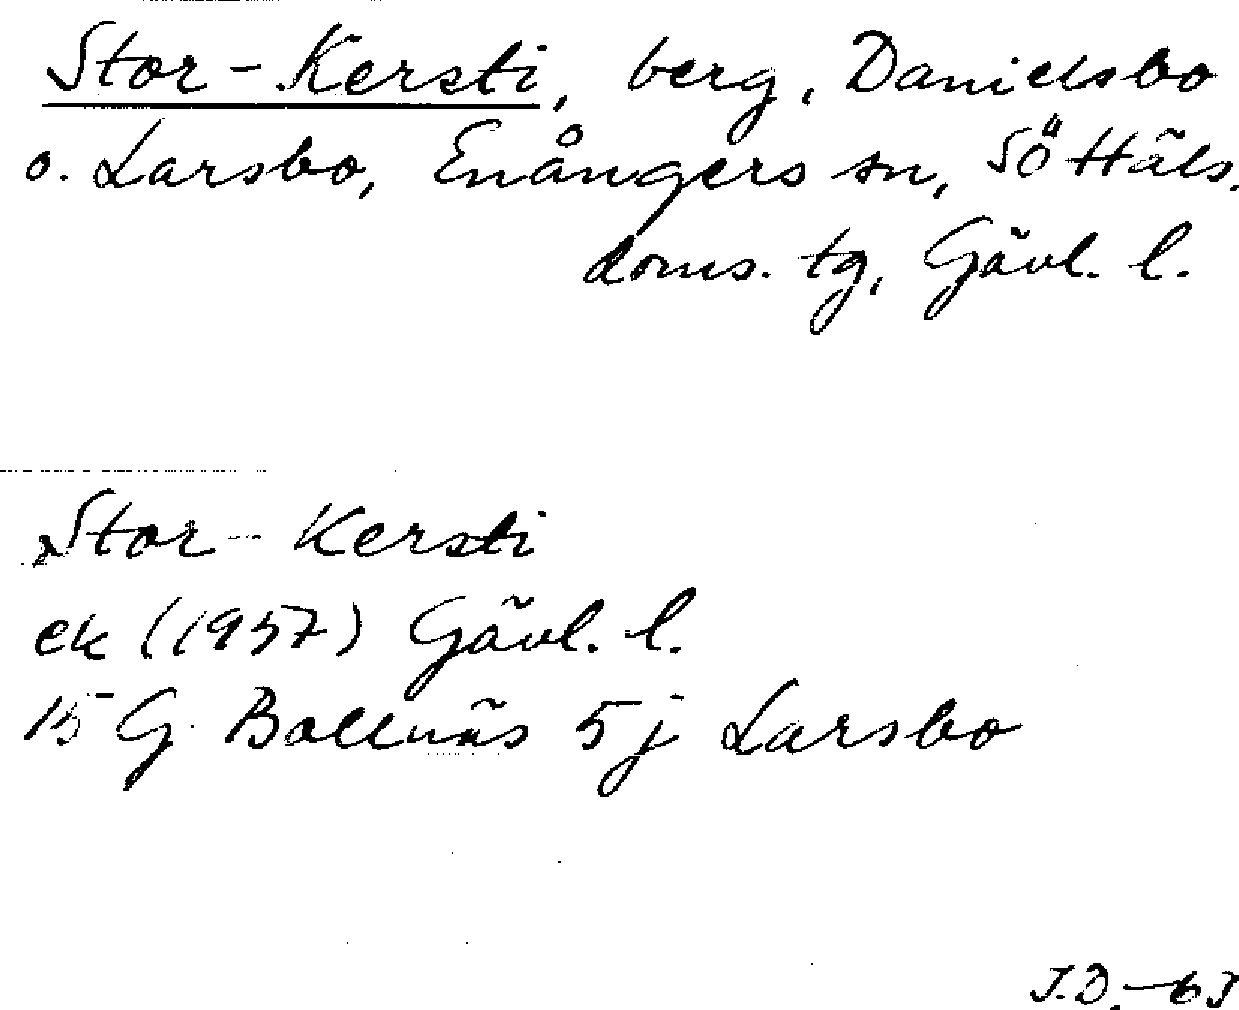 Stor-Kersti, berg, Danielsbo
o. Larsbo, Enångers sn, SöHäls.
doms. tg, Gävl. l.
Stor-Kersti
ek (1957) Gävl. l.
15 G Bollnäs 5j Larsbo
J.D.-63